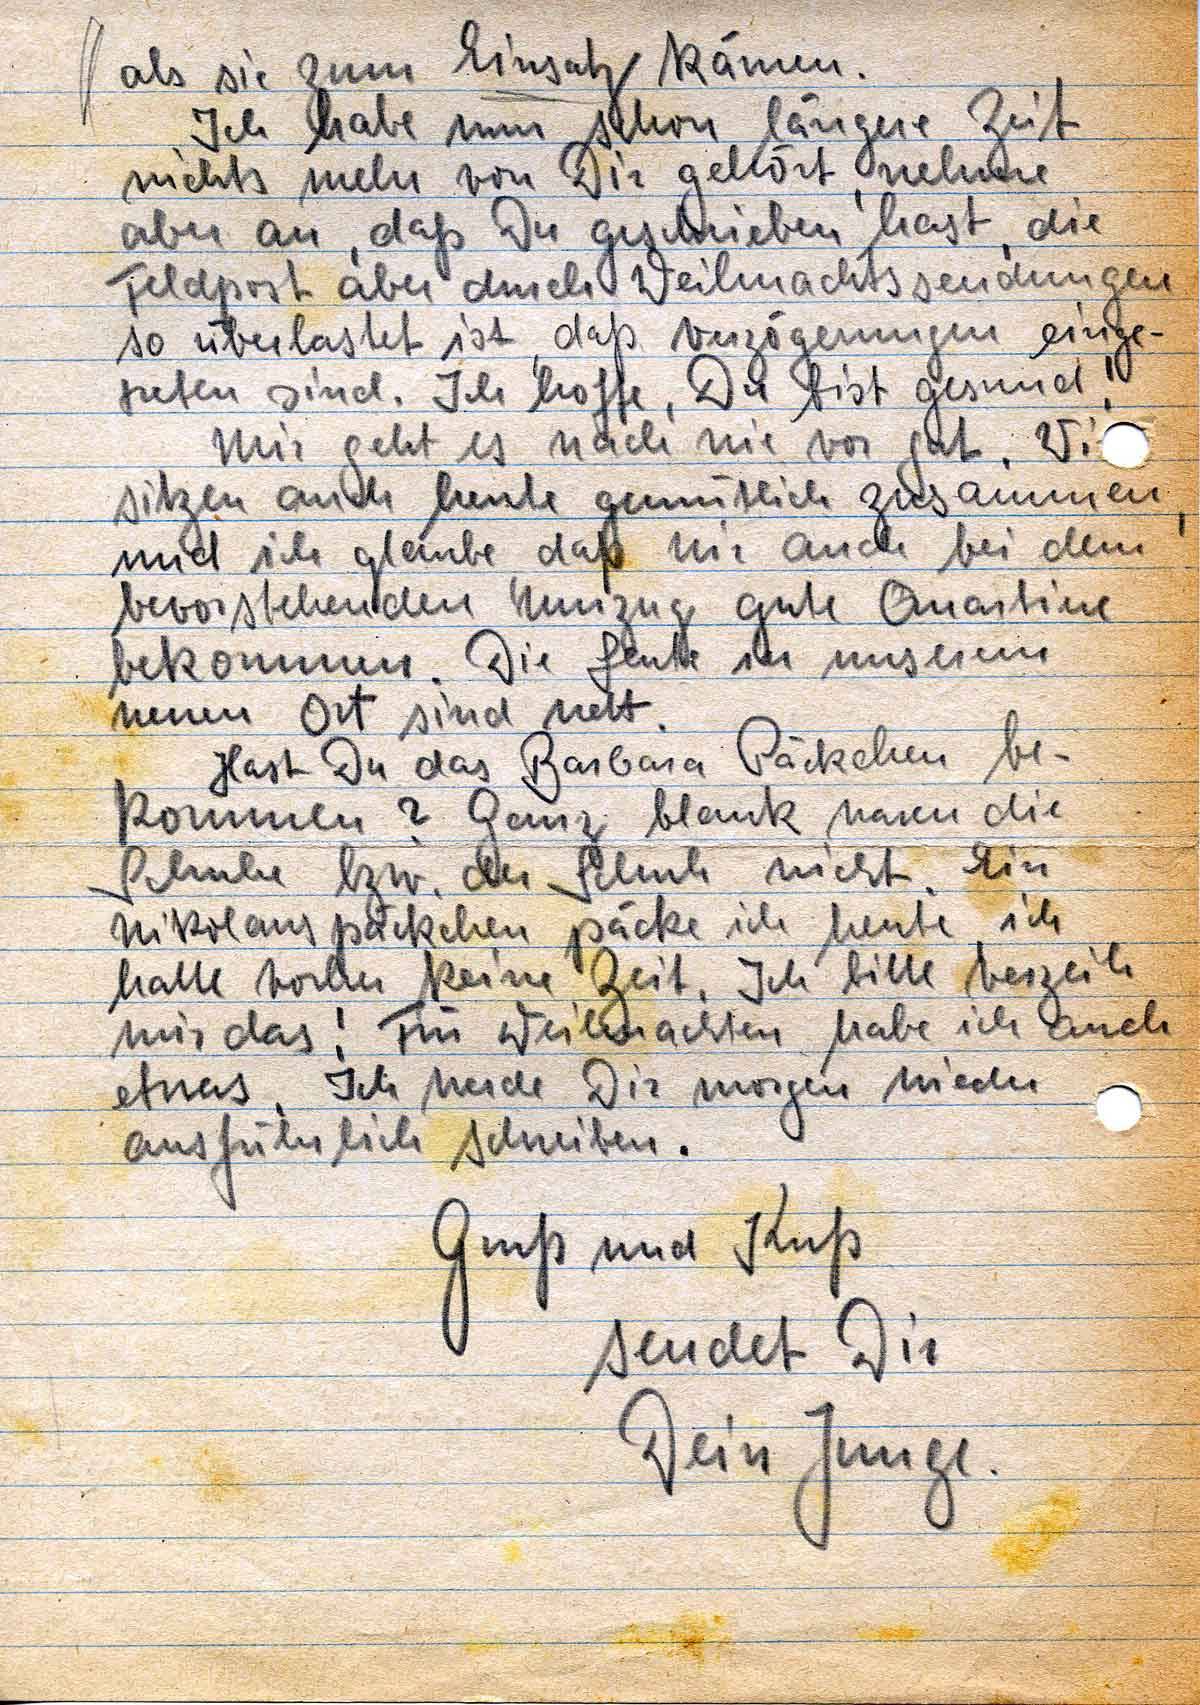 als sie zum Einsatz kämen.
Ich habe nun schon längere Zeit
nichts mehr von Dir gehört, nehme
aber an, daß Du geschrieben hast, die
Feldpost aber durch Weihnachtssendungen
so überlastet ist, daß Verzögerungen einge-
treten sind. Ich hoffe, Du bist gesund!
Mir geht es nach wie vor gut. Wi
sitzen auch heute gemütlich zusammen,
und ich glaube daß wir auch bei dem
bevorstehenden Umzug gute Quartiere
bekommen. Die Leute in unserem
neuen Ort sind nett.
Hast Du das Barbara Päckchen be-
kommen? Ganz blank waren die
Schuhe bzw. der Schuh nicht. Ein
Nikolauspäckchen päcke ich heute, ich
hatte vorher keine Zeit. Ich bitte verzeih
mir das! Für Weihnachten habe ich auch
etwas. Ich werde Dir morgen wieder
ausführlich schreiben.
Gruß und Kuß
sendet Dir
Dein Junge.